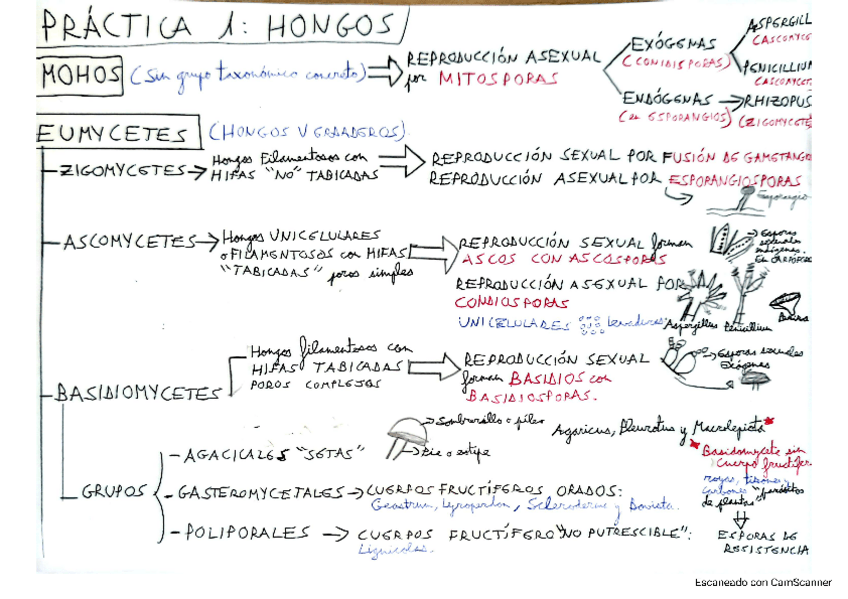 PRÁCTICA 1: HONGOS
MOHOS (Sin grupo taxonómico concreto)
REPRODUCCIÓN ASEXUAL
por MITOSPORAS
EXÓGENAS
(CONIDIOSPORAS)
ENDÓGENAS → RHIZOPUS
(en ESPORANGIOS) (ZIGOMYCETE
ASPERGILL
CASCOMYCE
PENICILLIUM
CASCOMYCET
EUMYCETES (HONGOS VERDADEROS)
ZIGOMYCETES → Hongos Filamentosos con
HIFAS "NO" TABICADAS
REPRODUCCIÓN SEXUAL POR FUSIÓN DE GAMETANG
REPRODUCCIÓN ASEXUAL POR ESPORANGIOSPORAS
Esporangio
ASCOMYCETES → Hongos UNICELULARES
o FILAMENTOSOS con HIFAS
"TABICADAS" poros simples
REPRODUCCIÓN SEXUAL forman
ASCOS CON ASCOSPORAS
Esporas
sexuales
endógenas.
REPRODUCCIÓN ASEXUAL POR
CONDIOSPORAS
UNICELULARES levaduras
Aspergillus Penicillium
BASIDIOMYCETES
Hongos filamentosos con
HIFAS TABICADAS
POROS COMPLEJOS
REPRODUCCIÓN SEXUAL
forman BASIDIOS con
BASIDIOSPORAS.
Esporas sexuales
Exógenas
GRUPOS
- AGACICALES "SETAS"
Sombrerillo o píleo
Pie o estipe
Agaricus, Pleurotus y Macrolepiota*
- GASTEROMYCETALES → CUERPOS FRUCTÍFEROS ORADOS:
Geastrum, Lycoperdon, Scleroderma y Bovista.
- POLIPORALES → CUERPOS FRUCTÍFERO "NO PUTRESCIBLE":
Lignícolas.
*Basidiomycete sin
cuerpo fructífer
royas, tizones y
carbones "parásitos
de plantas"
ESPORAS DE
RESISTENCIA
Escaneado con CamScanner